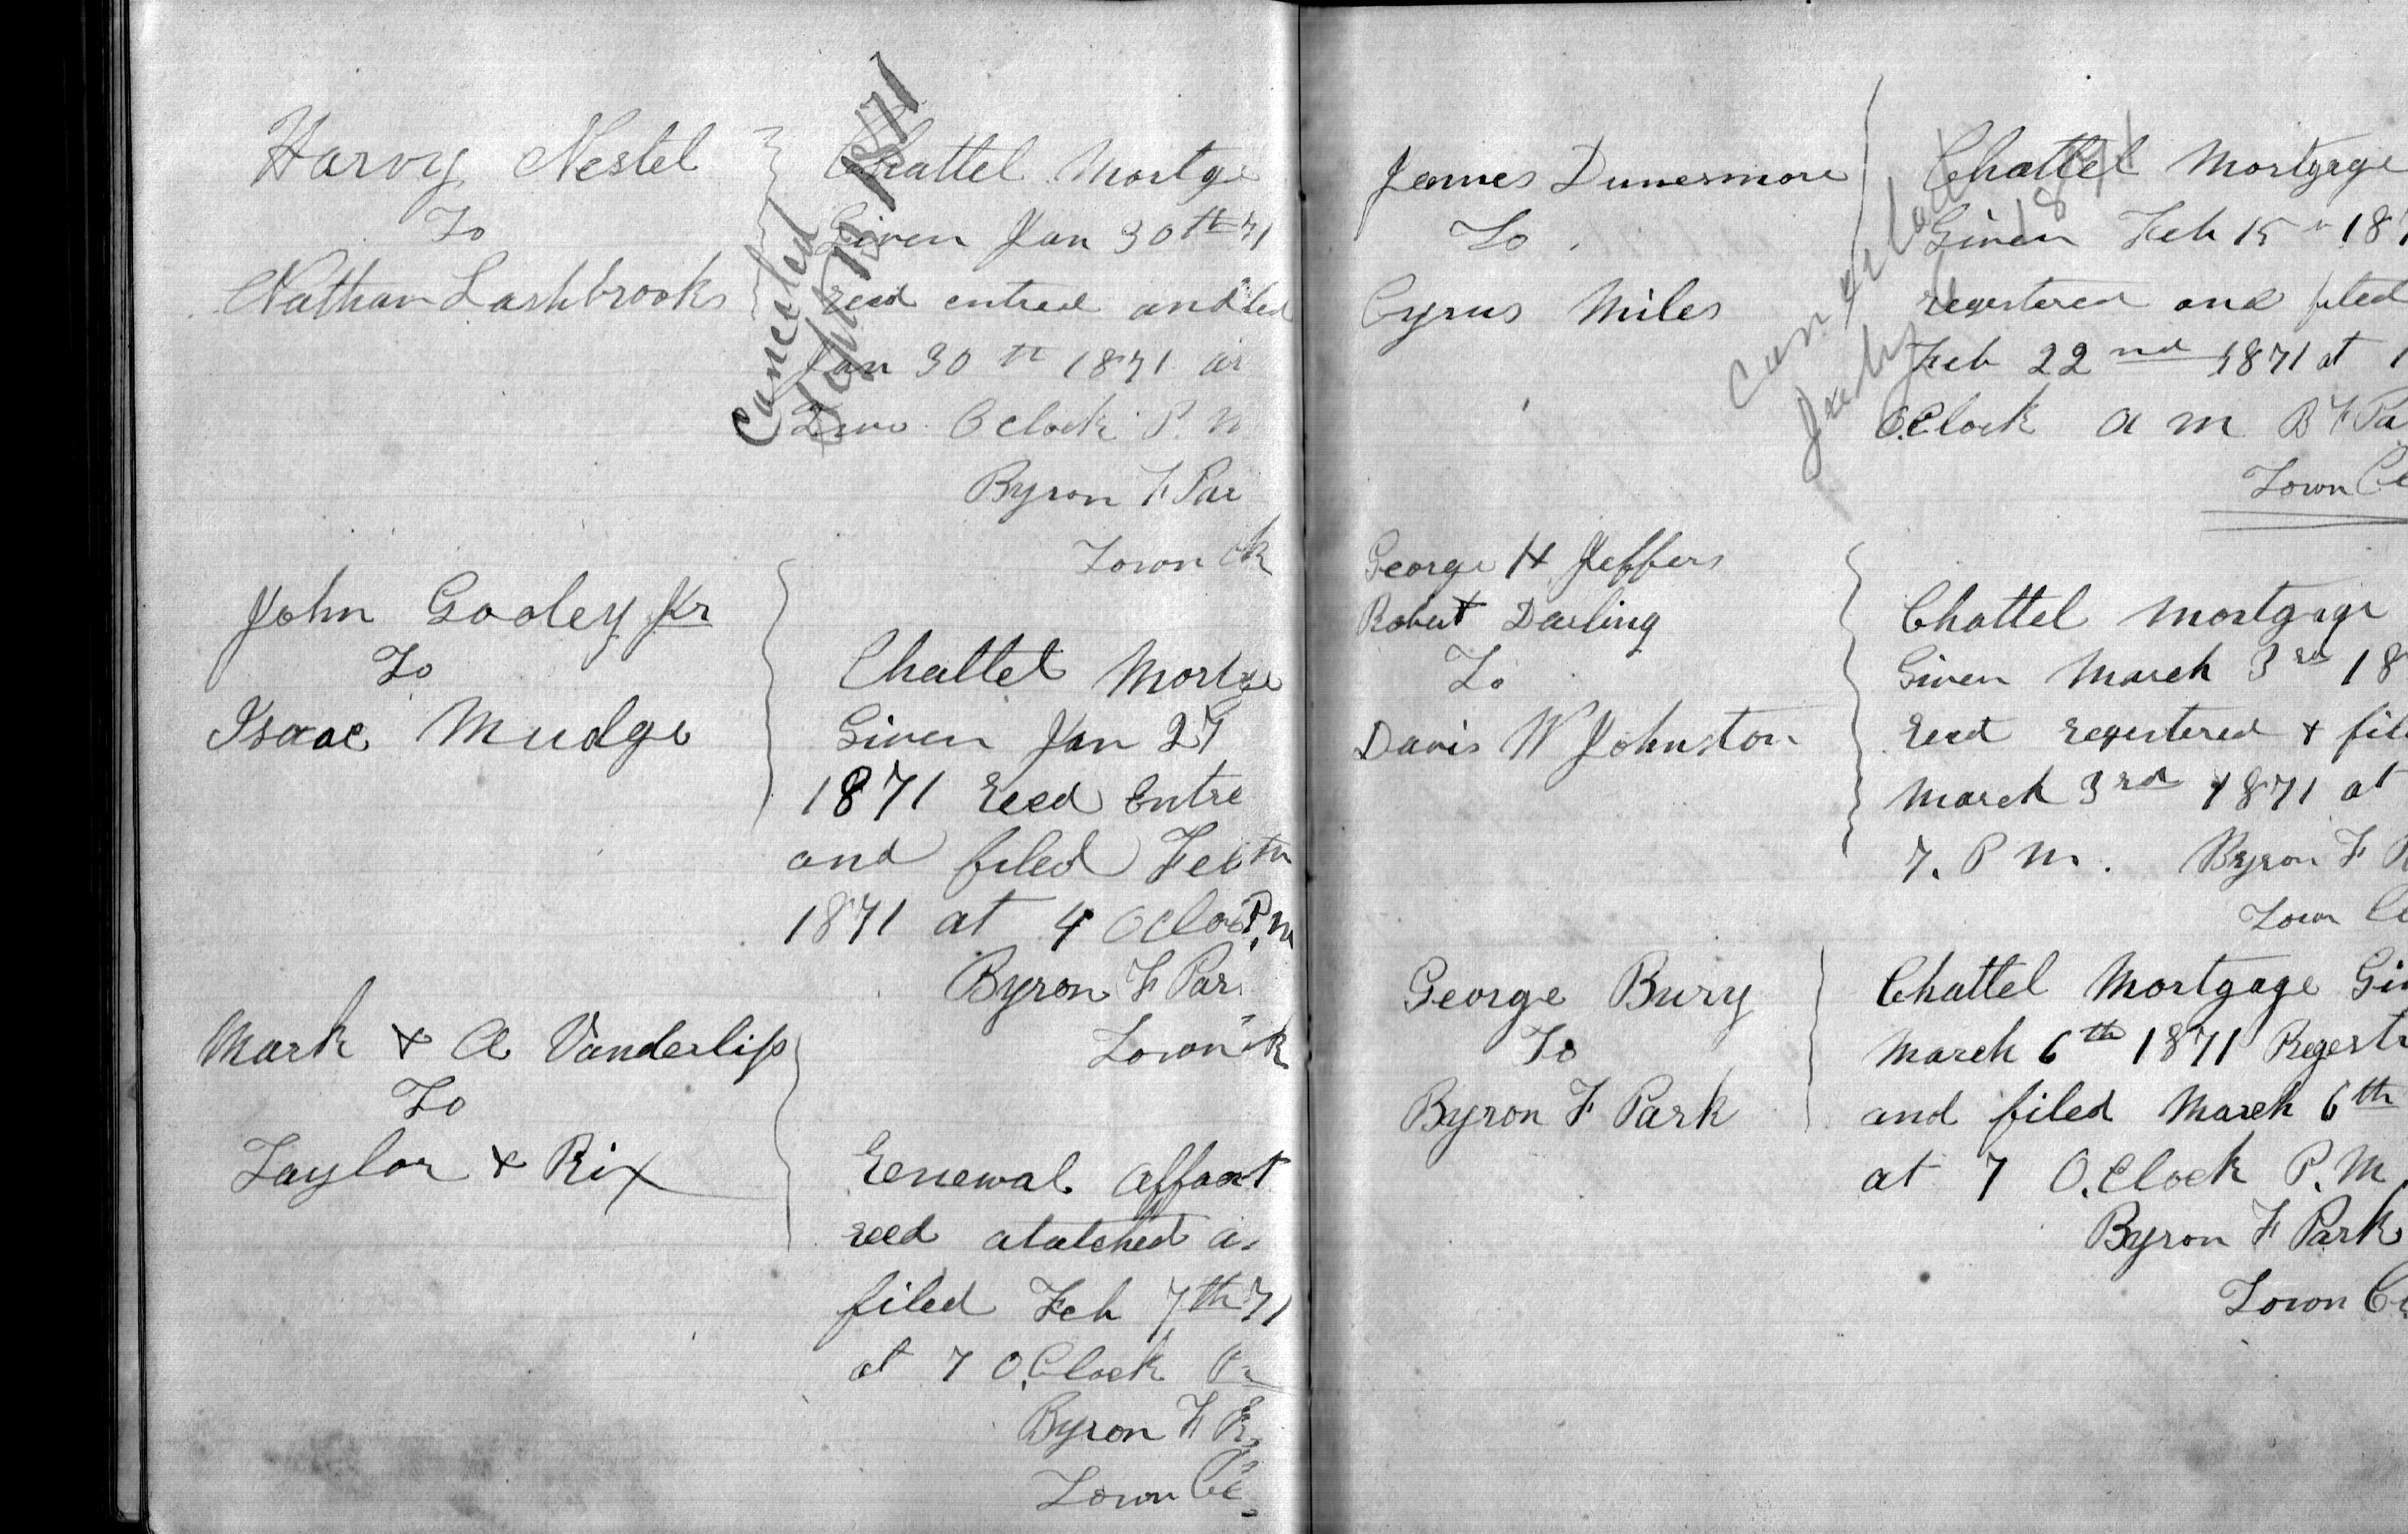 Harvy Nestel
To
Nathan Lashbrooks
Chattel Mortge
Given Jan 30th 71
recd entred and
Jan 30th 1871 at
Two Oclock P. M
Byron F Par
Town
Canceled
Sept 13 1871
John Gooley Jr
To
Isaac Mudge
Chattel Mortge
Given Jan 27
1871 recd Entre
and filed Feb th
1871 at 4 Oclo P.M
Byron F Par
Town
Mark & A Vanderlip
To
Taylor & Rix
renewal
recd atatched a
filed Feb 7th 71
at 7 O.Clock
Byron F
Town
James Dunesmore
To
Cyrus Miles
Chattel Mortgage
Given Feb 15 187
regestered and filed
Feb 22nd 1871 at 1
O.Clock a m B F Pa
Town Cl
July
1871
George H Jeffers
Robert Darling
To
Davis W Johnston
Chattel Mortgage
Given March 3rd 18
recd regestered & file
March 3rd 1871 at
7. P M. Byron F P
Town Cl
George Bury
To
Byron F Park
Chattel Mortgage Giv
March 6th 1871 Regestr
and filed March 6th
at 7 O.Clock P.M
Byron F Park
Town Cl